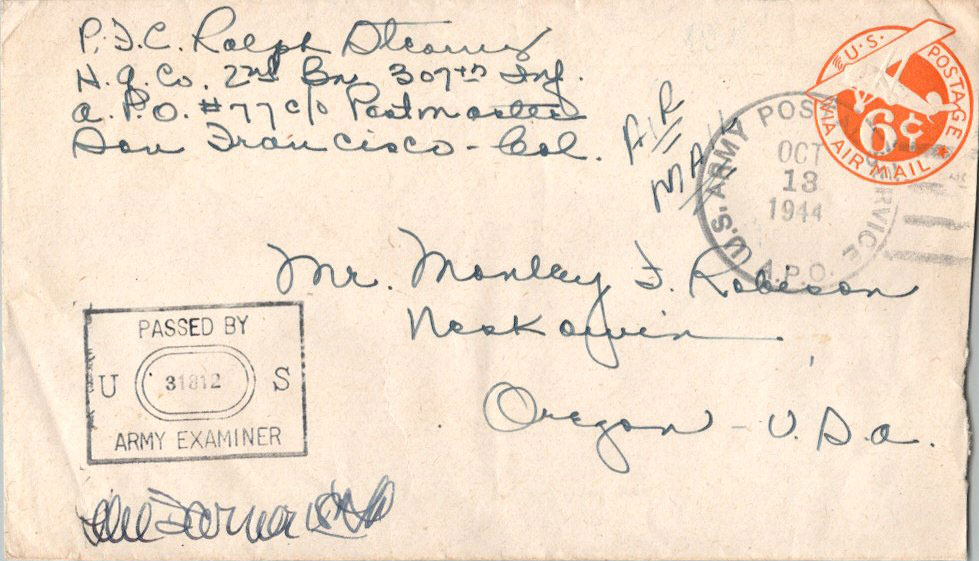 P.F.C. Ralph Stearns
H.q. Co. 2nd Bn. 307th Inf.
A.P.O. #77 c/o Postmaster
San Francisco - Cal.
AIR
MAIL
U.S. POSTAGE
6¢
VIA AIR MAIL
U.S. ARMY POSTAL SERVICE
OCT
13
1944
A.P.O.
Mr. Manley F. Robison
Neskowin
Oregon - U.S.A.
PASSED BY
U 31812 S
ARMY EXAMINER